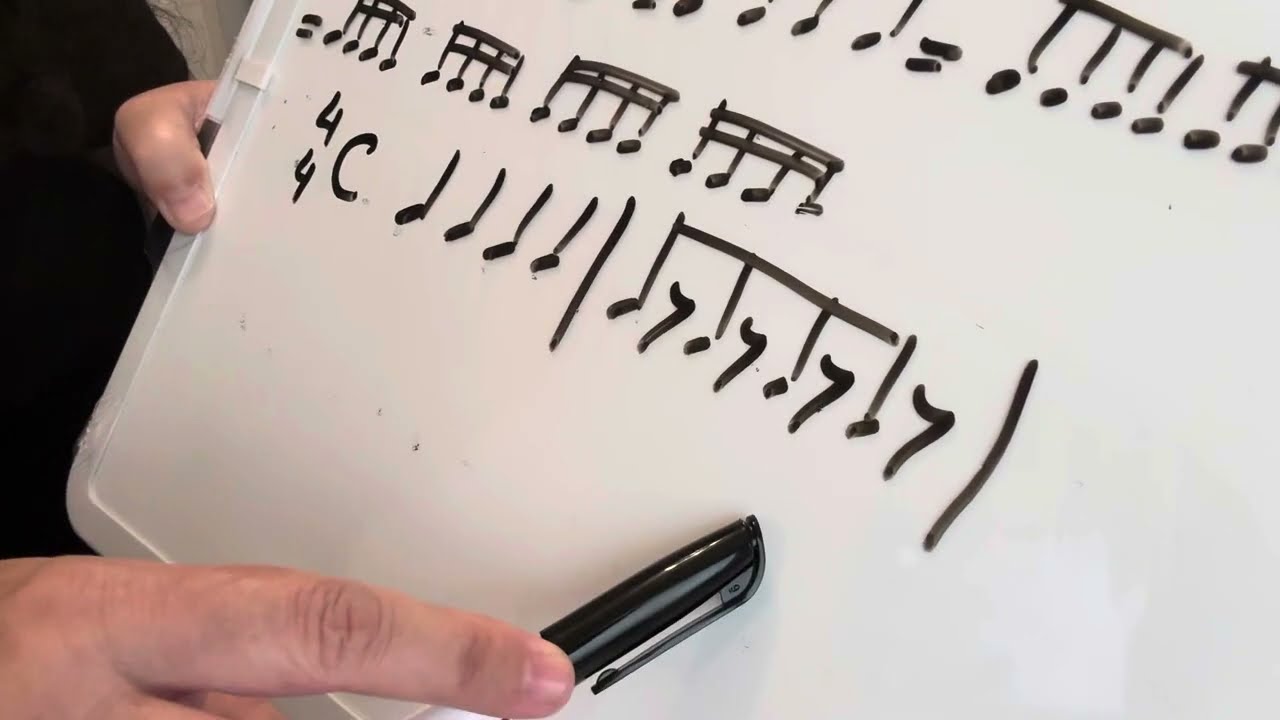 =
=
4
4 C